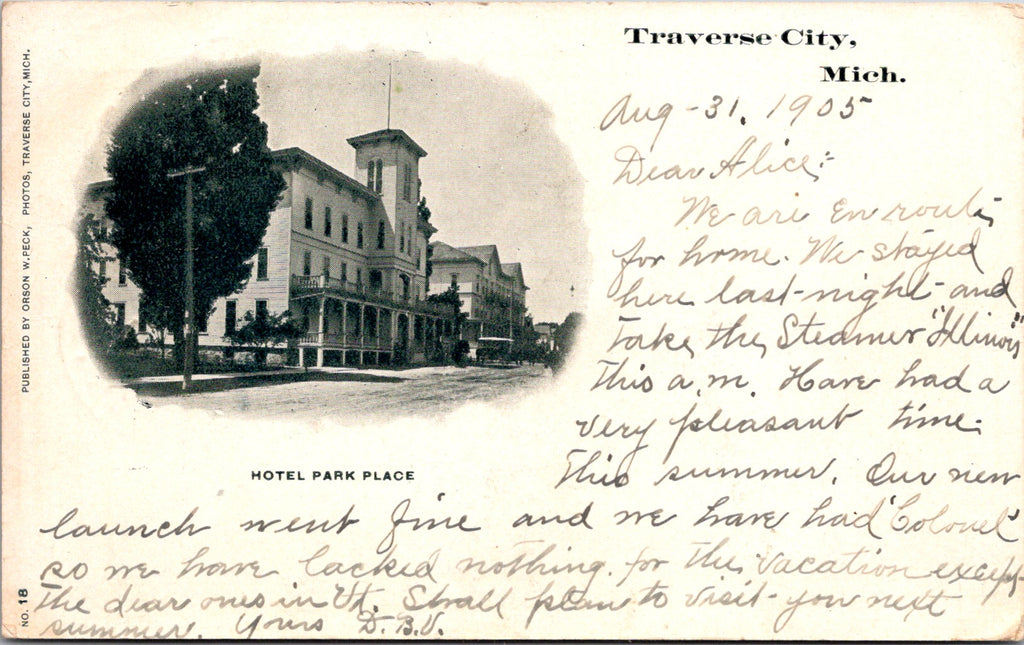 Traverse City,
Mich.
Aug-31. 1905
Dear Alice:-
We are en route
for home. We stayed
here last-night-and
take the Steamer "Illinois"
this a.m. Have had a
very pleasant time
this summer. Our new
launch went fine and we have had 'Colonel'
so we have lacked nothing for the vacation except-
the dear ones in Vt. Shall plan to visit-you next
summer. Yours D.B.V.
HOTEL PARK PLACE
PUBLISHED BY ORSON W. PECK, PHOTOS, TRAVERSE CITY, MICH.
NO. 18